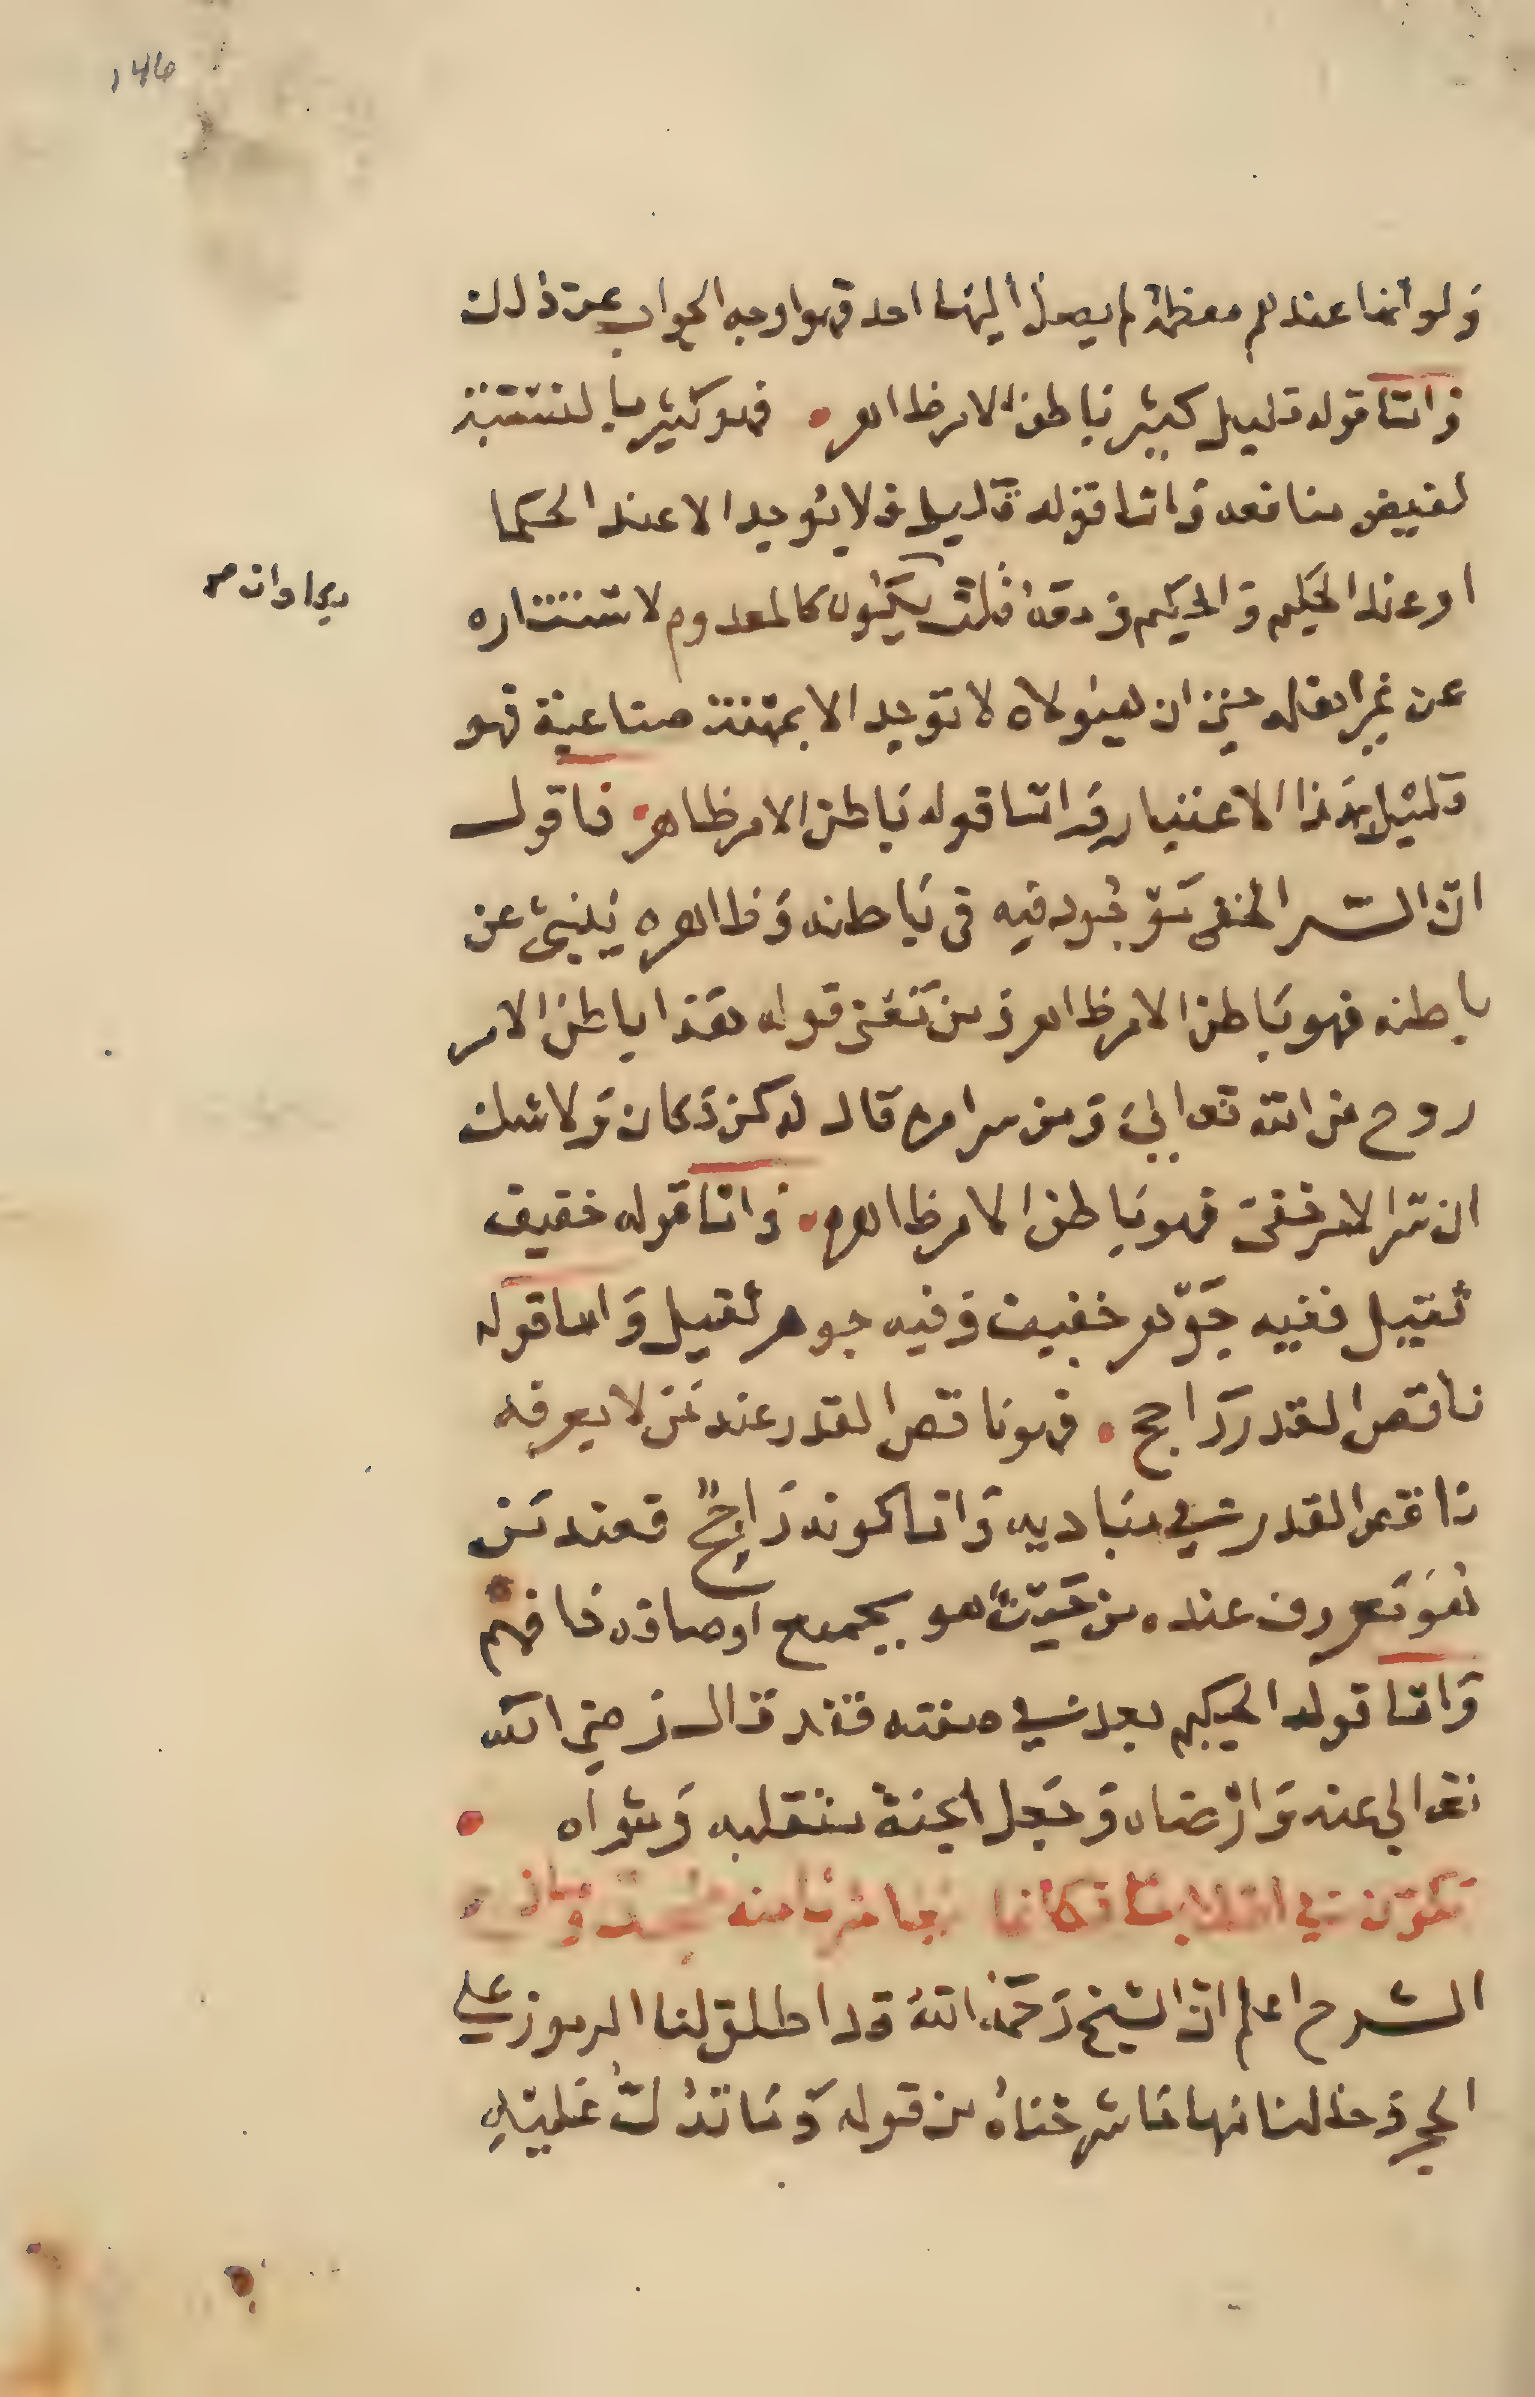 146
ولو انها عندهم معظمة لم يصل اليها احد فهوا وجه الجواب عن ذلك
واما قوله قليل كثير باطن الامر ظاهر فهو كثير بالنسبة
لفيض منافعه واما قوله قليل فلا يوجد الا عند الحكما
او عند الحكيم والحكيم في وقته فلت يكون كالمعدوم لاستتاره
عن غير اهله
ان هيولاه لا توجد الا بمهنة صناعية فهو
قليل بهذا الاعتبار واما قوله باطن الامر ظاهر فاقول
ان السر الخفي موجود فيه في باطنه وظاهره ينبئ عن
باطنه فهو باطن الامر ظاهر ومن معنى قوله هذا باطن الامر
روح من الله تعالى ومن سر امره قال له كن فكان ولا شك
ان سر الامر خفي فهو باطن الامر ظاهره واما قوله خفيف
ثقيل ففيه جوهر خفيف وفيه جوهر ثقيل واما قوله
ناقص القدر راجح فهو ناقص القدر عند من لا يعرفه
ناقص القدر في مباديه واما كونه راجح فعند من
هو معروف عنده من حيث هو بجميع اوصافه فافهم
واما قوله الحكيم بعد في صفته فقد قال رضي الله
تعالى عنه وارضاه وجعل الجنة منقلبه ومثواه
تكون في
الشرح اعلم ان الشيخ رحمه الله قد اطلق لنا الرموز على
الحجر وحل لنا منها ما شرحناه من قوله وما تدل عليه